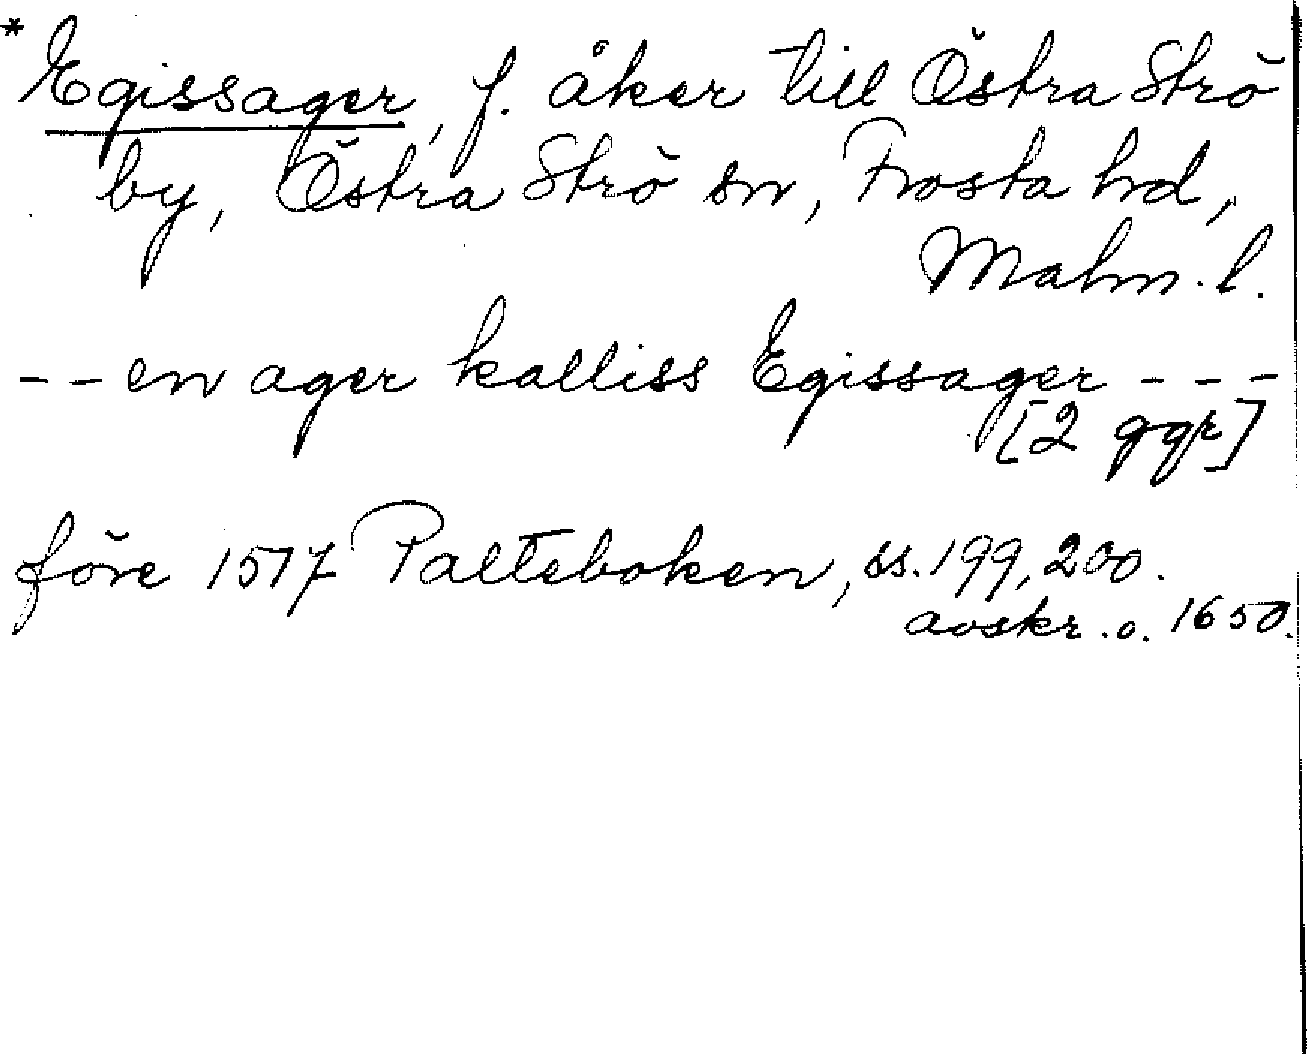 * Egissager, f. åker till Östra Strö
by, Östra Strö sn, Frosta hd,
Malm. l.
-- en ager kalliss Egissager ---
[2 ggr]
före 1517 Palteboken, ss. 199, 200.
avskr. o. 1650.